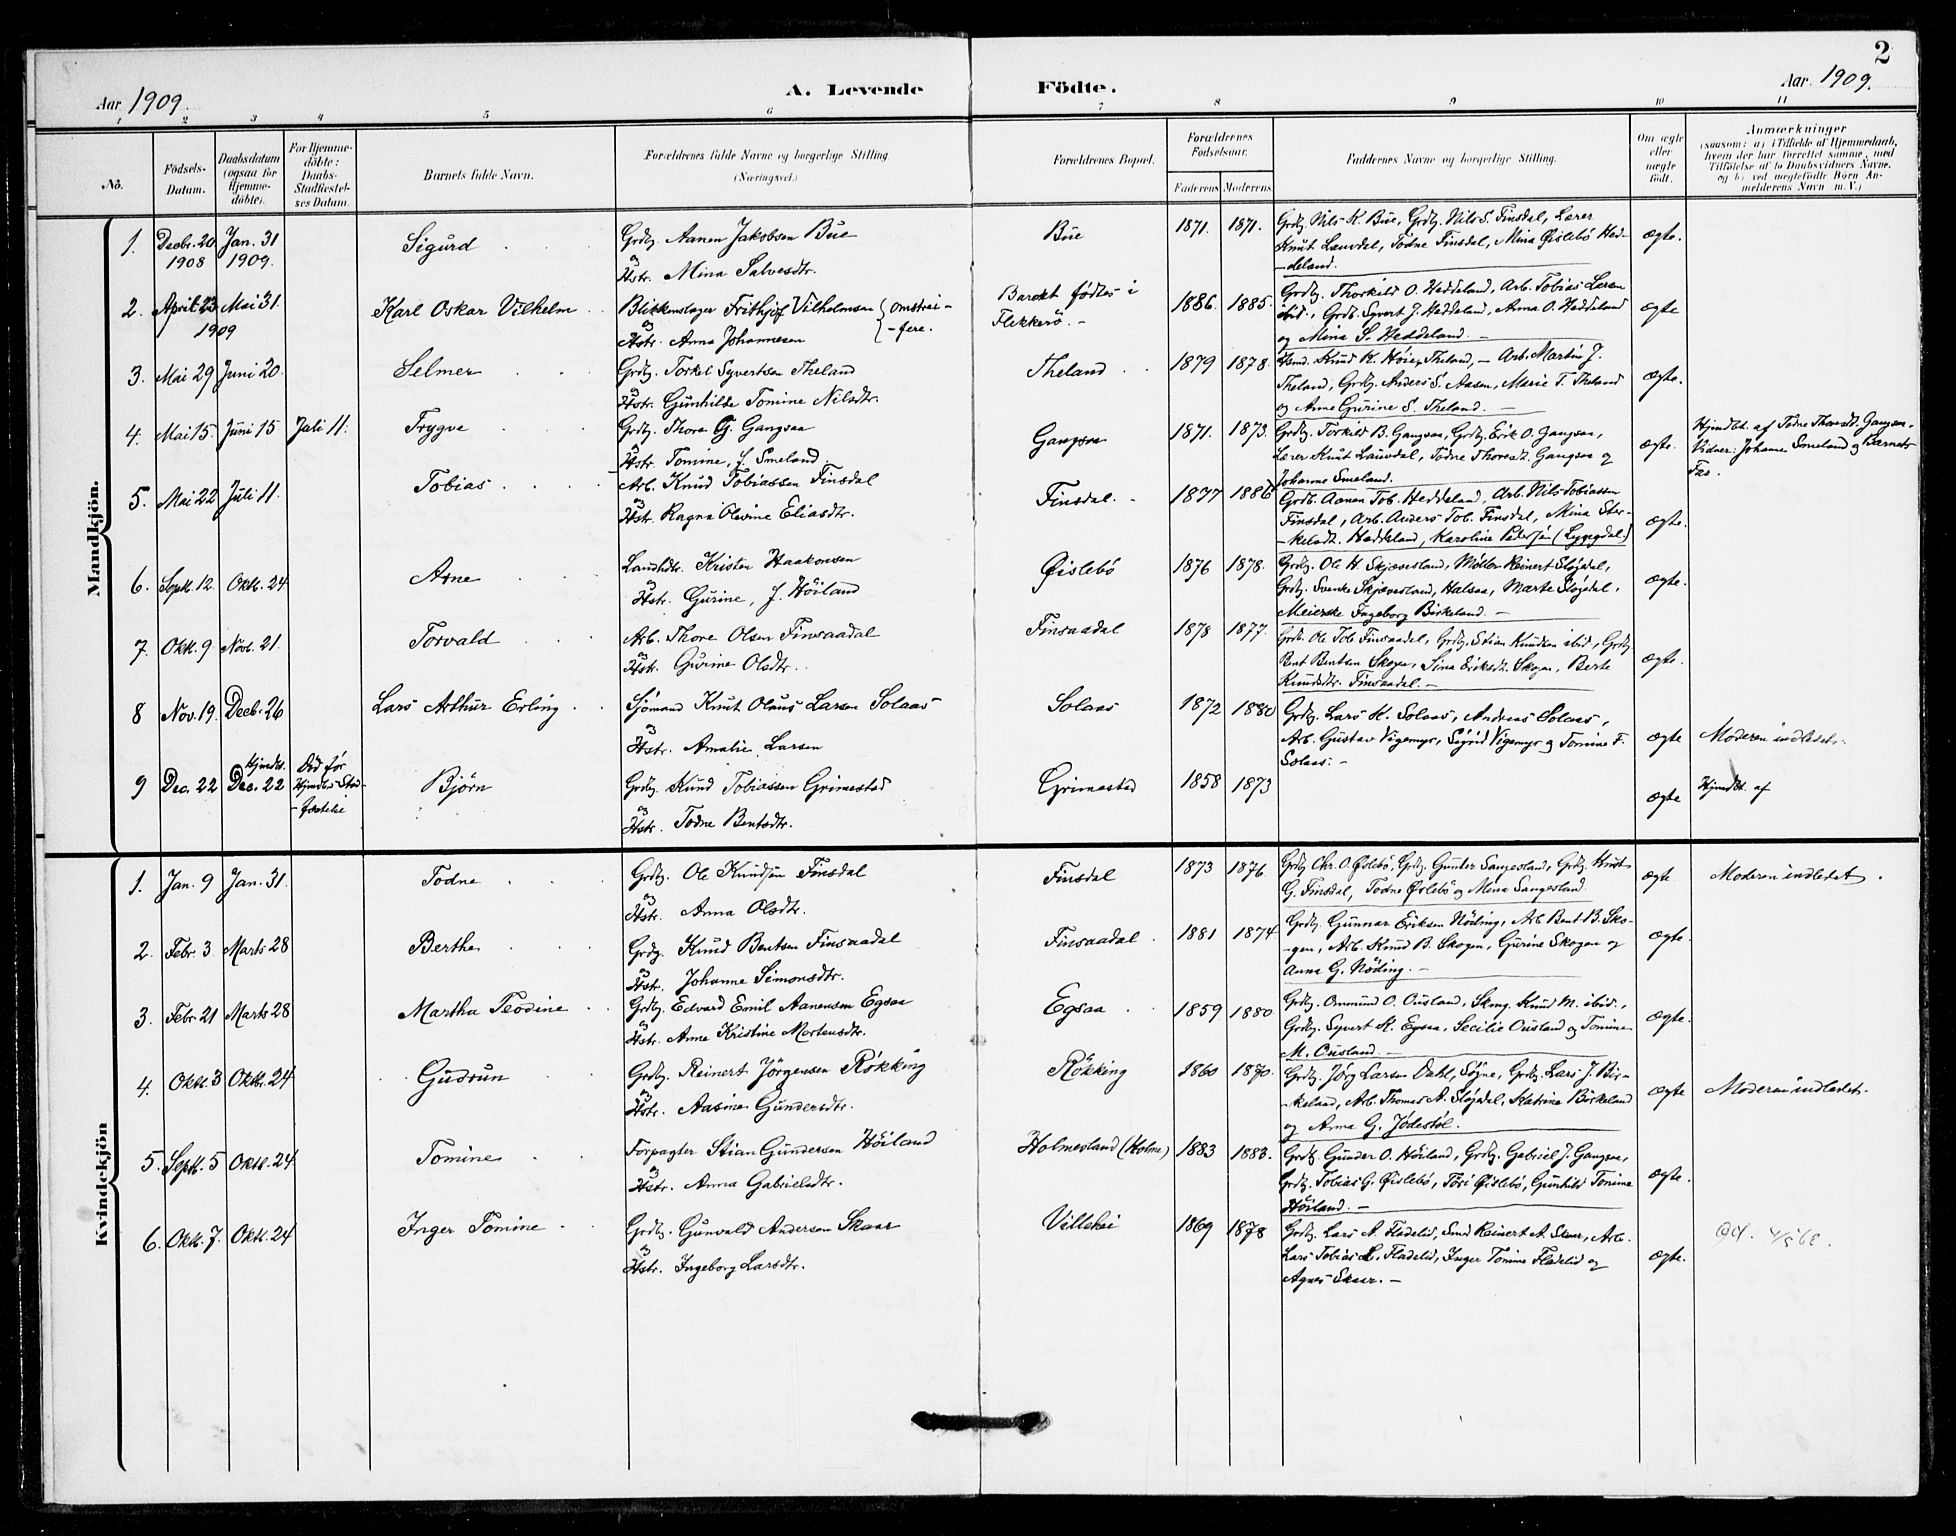 2
Aar 1909.
A. Levende Födte.
Aar 1909.
1 2 3 4 5 6 7 8 9 10 11
No.
Födsels-Datum.
Daabsdatum (ogsaa for Hjemme-döbte).
For Hjemme-döbte: Daabs-Stadfæstel-ses Datum.
Barnets fulde Navn.
Forældrenes fulde Navne og borgerlige Stilling (Næringsvei.)
Forældrenes Bopæl.
Forældrenes Födselsaar.
Faderens Moderens
Faddernes Navne og borgerlige Stilling.
Om ægte eller uægte födt.
Anmærkninger
(saasom: a) i Tilfælde af Hjemmedaab, hvem der har forrettet samme, med Tilföielse af to Daabsvidners Navne, og b) ved uægtefödte Börn An-melderens Navn m. V.)
Mandkjön.
1. Decbr. 20 Jan. 31 Sigurd Grdbr. Aanen Jakobsen Bue Bue 1871. 1871. Grdbr. Nils K. Bue, Grdbr. Nils S. Finsdal, Lærer
1908 1909. og Knut Lauvdal, Todne Finsdal, Mina Øislebö Hed-
Hstr. Mina Salvesdtr. -deland. ægte.
2. April 23 Mai 31. Karl Oskar Vilhelm Blikkenslager Frithjof Vilhelmsen (omstrei- Barnet fødtes i 1886. 1885. Grdbr. Thorkild O. Heddeland, Arb. Tobias
1909 og -fere. Flekkerö. - ibid., Grdbr. Syvert J. Heddeland, Anna O. Heddeland ægte
Hstr. Anna Johannesen og Mina S. Heddeland. -
3. Mai 29 Juni 20. Selmer Grdbr. Torkel Syvertsen Theland Theland 1879 1878. Knud K. Høie, Theland, - Arb. Martin J.
og Theland, Grdbr. Anders S. Aasen, Marie T. Theland ægte.
Hstr. Gunhilde Tomine Nilsdtr. og Anne Gurine S. Theland. -
4. Mai 15. Juni 15 Juli 11. Trygve Grdbr. Thore G. Gangsaa Gangsaa 1871. 1873. Grdbr. Torkild B. Gangsaa, Grdbr. Erik O. Gangsaa, ægte. Hjmdbt. af Todne Thoresdt. Gangsaa.
og Lærer Knut Lauvdal, Todne Thoresdt. Gangsaa og Vidner: Johanne Smeland og Barnets
Hstr. Tomine, J. Smeland. Johanne Smeland. Far.
5. Mai 22 Juli 11. Tobias Arb. Knud Tobiassen Finsdal Finsdal. - 1877 1886 Grdbr. Aanen Tob. Heddeland, Arb. Nils Tobiassen
og Finsdal, Arb. Anders Tob. Finsdal, Mina Ster- ægte.
Hstr. Ragna Olevine Eliasdtr. -kelsdt. Heddeland, Karoline Pedersen (Lyngdal.)
6. Septb. 12. Oktb. 24 Arne Landhdlr. Kristen Haakonsen Øislebö 1876 1878. Grdbr. Ole H. Skjævesland, Møller Reinert Sløgdal,
og Grdbr. Svenke Skjævesland, Halsaa, Marte Sløgdal, ægte.
Hstr. Gurine, J. Höiland Meierske Ingeborg Birkeland. -
7. Oktb. 9 Novb. 21. Torvald Arb. Thore Olsen Finsaadal Finsaadal 1878 1877. Grdbr. Ole Tob. Finsaadal, Grdbr. Stian Knudsen ibid, Grdbr.
og Bent Bentsen Skogen, Sina Eriksdt. Skogen, Berte ægte.
Hstr. Gurine Olsdtr. Knudsdtr. Finsaadal. -
8 Nov. 19. Decb. 26 Lars Arthur Erling Sjömand Knut Olaus Larsen Solaas Solaas 1872 1880 Grdbr. Lars K. Solaas, Andreas Solaas,
og Arb. Gustav Vigemyr, Sigrid Vigemyr og Tomine F. ægte Moderen indledet.
Hstr. Amalie Larsen Solaas. -
9 Dec. 22 Hjmdbt. Dec. 22 Død før Hjmdbs Stad-fæstelse Bjørn Grdbr. Knud Tobiassen Grimestad Grimestad 1858 1873 ægte Hjmdbt. af
og
Hstr. Todne Bentsdtr.
Kvindekjön
1. Jan. 9 Jan. 31. Todne Grdbr. Ole Knudsen Finsdal Finsdal 1873 1876. Grdbr. Chr. O. Øislebö, Grdbr. Gunder Sangesland, Grdbr. Knut ægte Moderen indledet.
og G. Finsdal, Todne Øislebö og Mina Sangesland.
Hstr. Anna Olsdtr.
2. Febr. 3. Marts 28 Berthe Grdbr. Knud Bentsen Finsaadal Finsaadal. 1881 1874 Grdbr. Gunnar Eriksen Nöding, Arb. Bent B. Sko-
og -gen, Arb. Knud B. Skogen, Gurine Skogen og ægte.
Hstr. Johanne Simonsdtr. Anna G. Nöding. -
3. Febr. 21 Marts 28 Martha Teodine Grdbr. Edvard Emil Aanensen Egsaa Egsaa 1859. 1880. Grdbr. Ommund O. Ousland, Knud M. ibid.,
og Grdbr. Syvert K. Egsaa, Secilie Ousland og Tomine ægte.
Hstr. Anne Kristine Mortensdtr. M. Ousland. -
4. Oktb. 3 Oktbr. 24 Gudrun Grdbr. Reinert Jörgensen Rökking Rökking 1860 1870. Grdbr. Jörg Larsen Dahl, Søgne, Grdbr. Lars J. Bir-
og -keland, Arb. Thomas A. Sløgdal, Katrine Birkeland ægte Moderen indledet.
Hstr. Aasine Gundersdtr. og Anna G. Jödestöl.
5. Septb. 5 Oktb. 24 Tomine Forpagter Stian Gundersen Höiland Holmesland (Holme) 1883 1883. Grdbr. Gunder O. Höiland, Grdbr. Gabriel J. Gangsaa,
og Grdbr. Tobias G. Øislebö, Tori Øislebö, Gunhild Tomine ægte.
Hstr. Anna Gabrielsdtr. Höiland. -
6. Oktb. 7. Oktb. 24 Inger Tomine Grdbr. Gunvald Andersen Skaar Villehei 1869 1878 Grdbr. Lars A. Fladelid, Smd Reinert A. Skaar, Arb.
og Lars Tobias L. Fladelid, Inger Tomine Fladelid og ægte.
Hstr. Ingeborg Larsdtr. Agnes Skaar. -